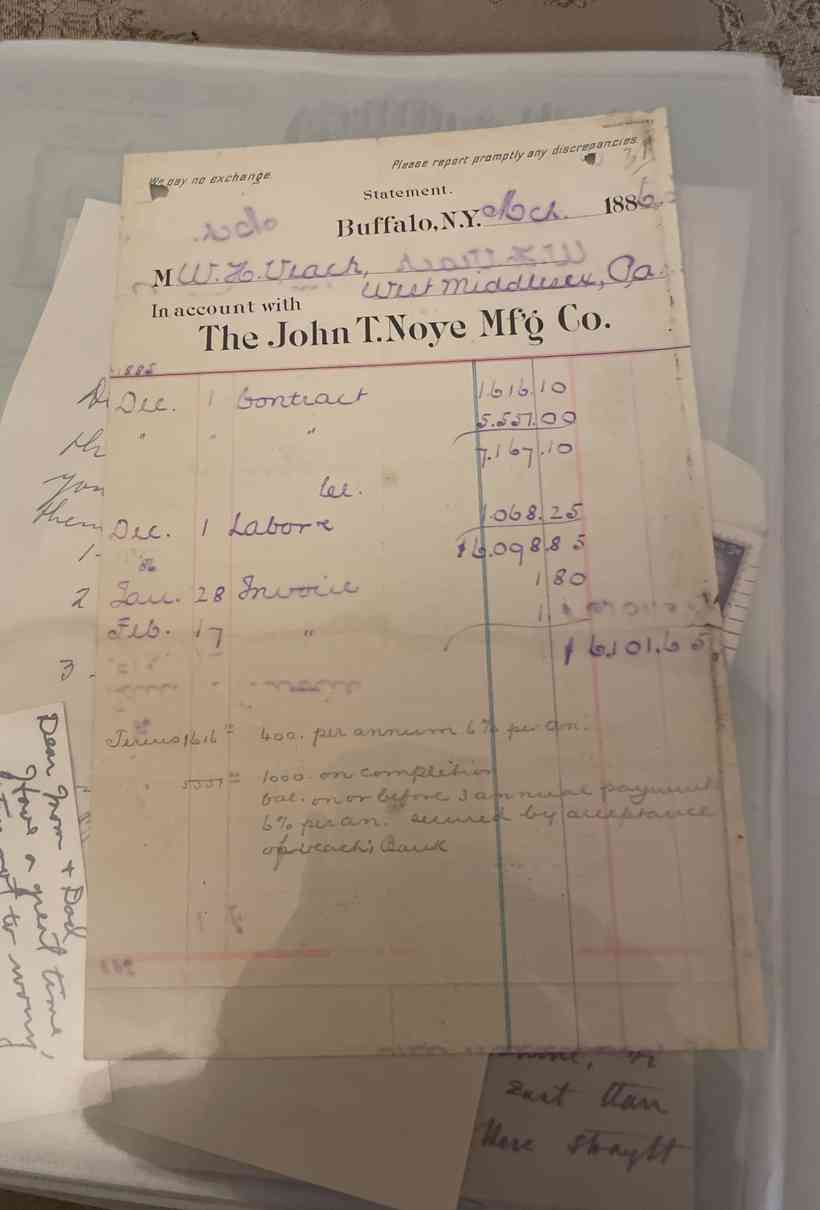 We pay no exchange.
Please report promptly any discrepancies.
Statement.
Buffalo, N.Y. Mch. 1886.
M W. H. Veach,
West Middlesex, Pa.
In account with
The John T. Noye Mf'g Co.
1885
Dec. 1 Contract 1.616.10
" " " 5.551.00
7.167.10
Cr.
Dec. 1 Labor 1.068.25
$6.098.85
86
Jan. 28 Invoice 1 80
Feb. 17 " 1
$6.101.65
Terms 1616 400. per annum 6% per an.
" 5551 1000. on completion
bal. on or before 3 annual payments
6% per an. secured by acceptance
of Veach's Bank
Dear Mom + Dad
Have a great time,
to worry
you
them
1-
2
3 -
East
More straight